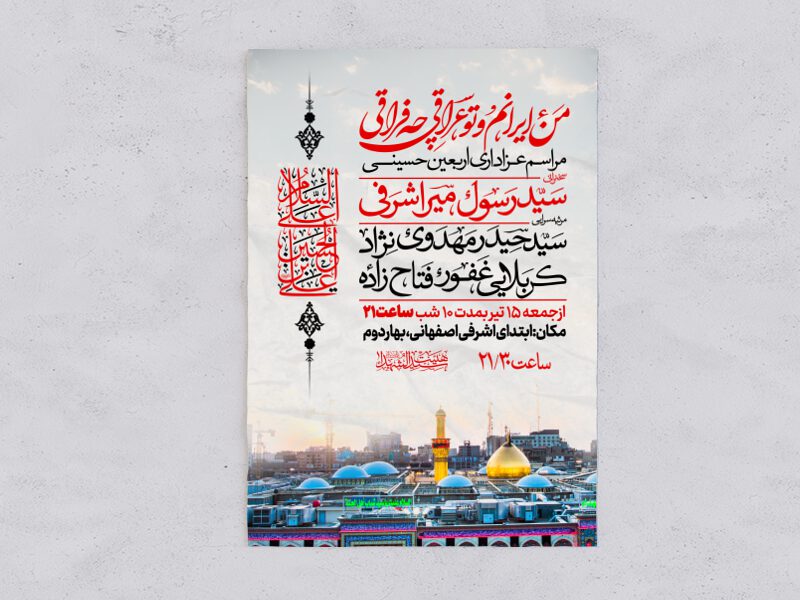 من ایرانم و تو عراقی چه فراقی
مراسم عزاداری اربعین حسینی
سخنرانی
سید رسول میراشرفی
مرثیه سرایی
سید حیدر مهدوی نژاد
کربلایی غفور فتاح زاده
از جمعه ۱۵ تیر بمدت ۱۰ شب ساعت ۲۱
مکان: ابتدای اشرفی اصفهانی، بهار دوم
ساعت ۲۱/۳۰
هیئت سیدالشهدا
السلام
علی
الحسین